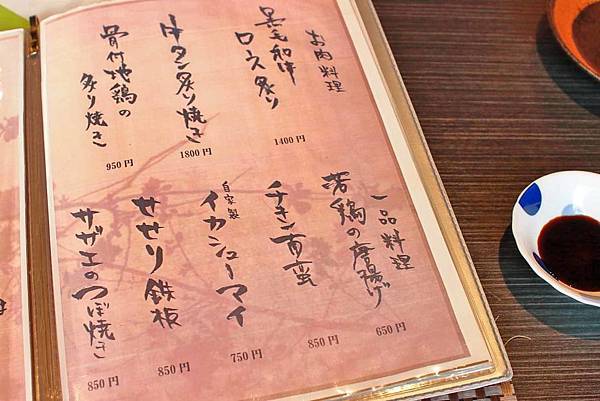 お肉料理
黒毛和牛
ロース炙り
1400円
牛タン炙り焼き
1800円
骨付地鶏の
炙り焼き
950円
一品料理
若鶏の唐揚げ
650円
チキン南蛮
850円
自家製
イカシューマイ
750円
せせり鉄板
850円
サザエのつぼ焼き
850円